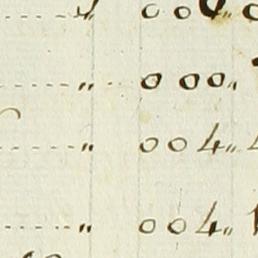 ----- " 0 0 0 "
----- " 0 0 0 "
----- " 0 0 4 "
----- " 0 0 4 "